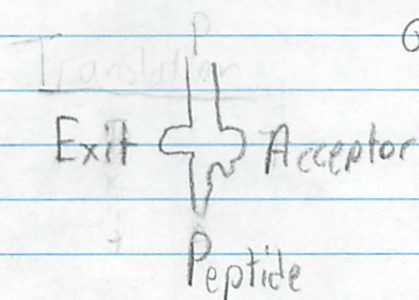 P
Translation
Exit Acceptor
Peptide